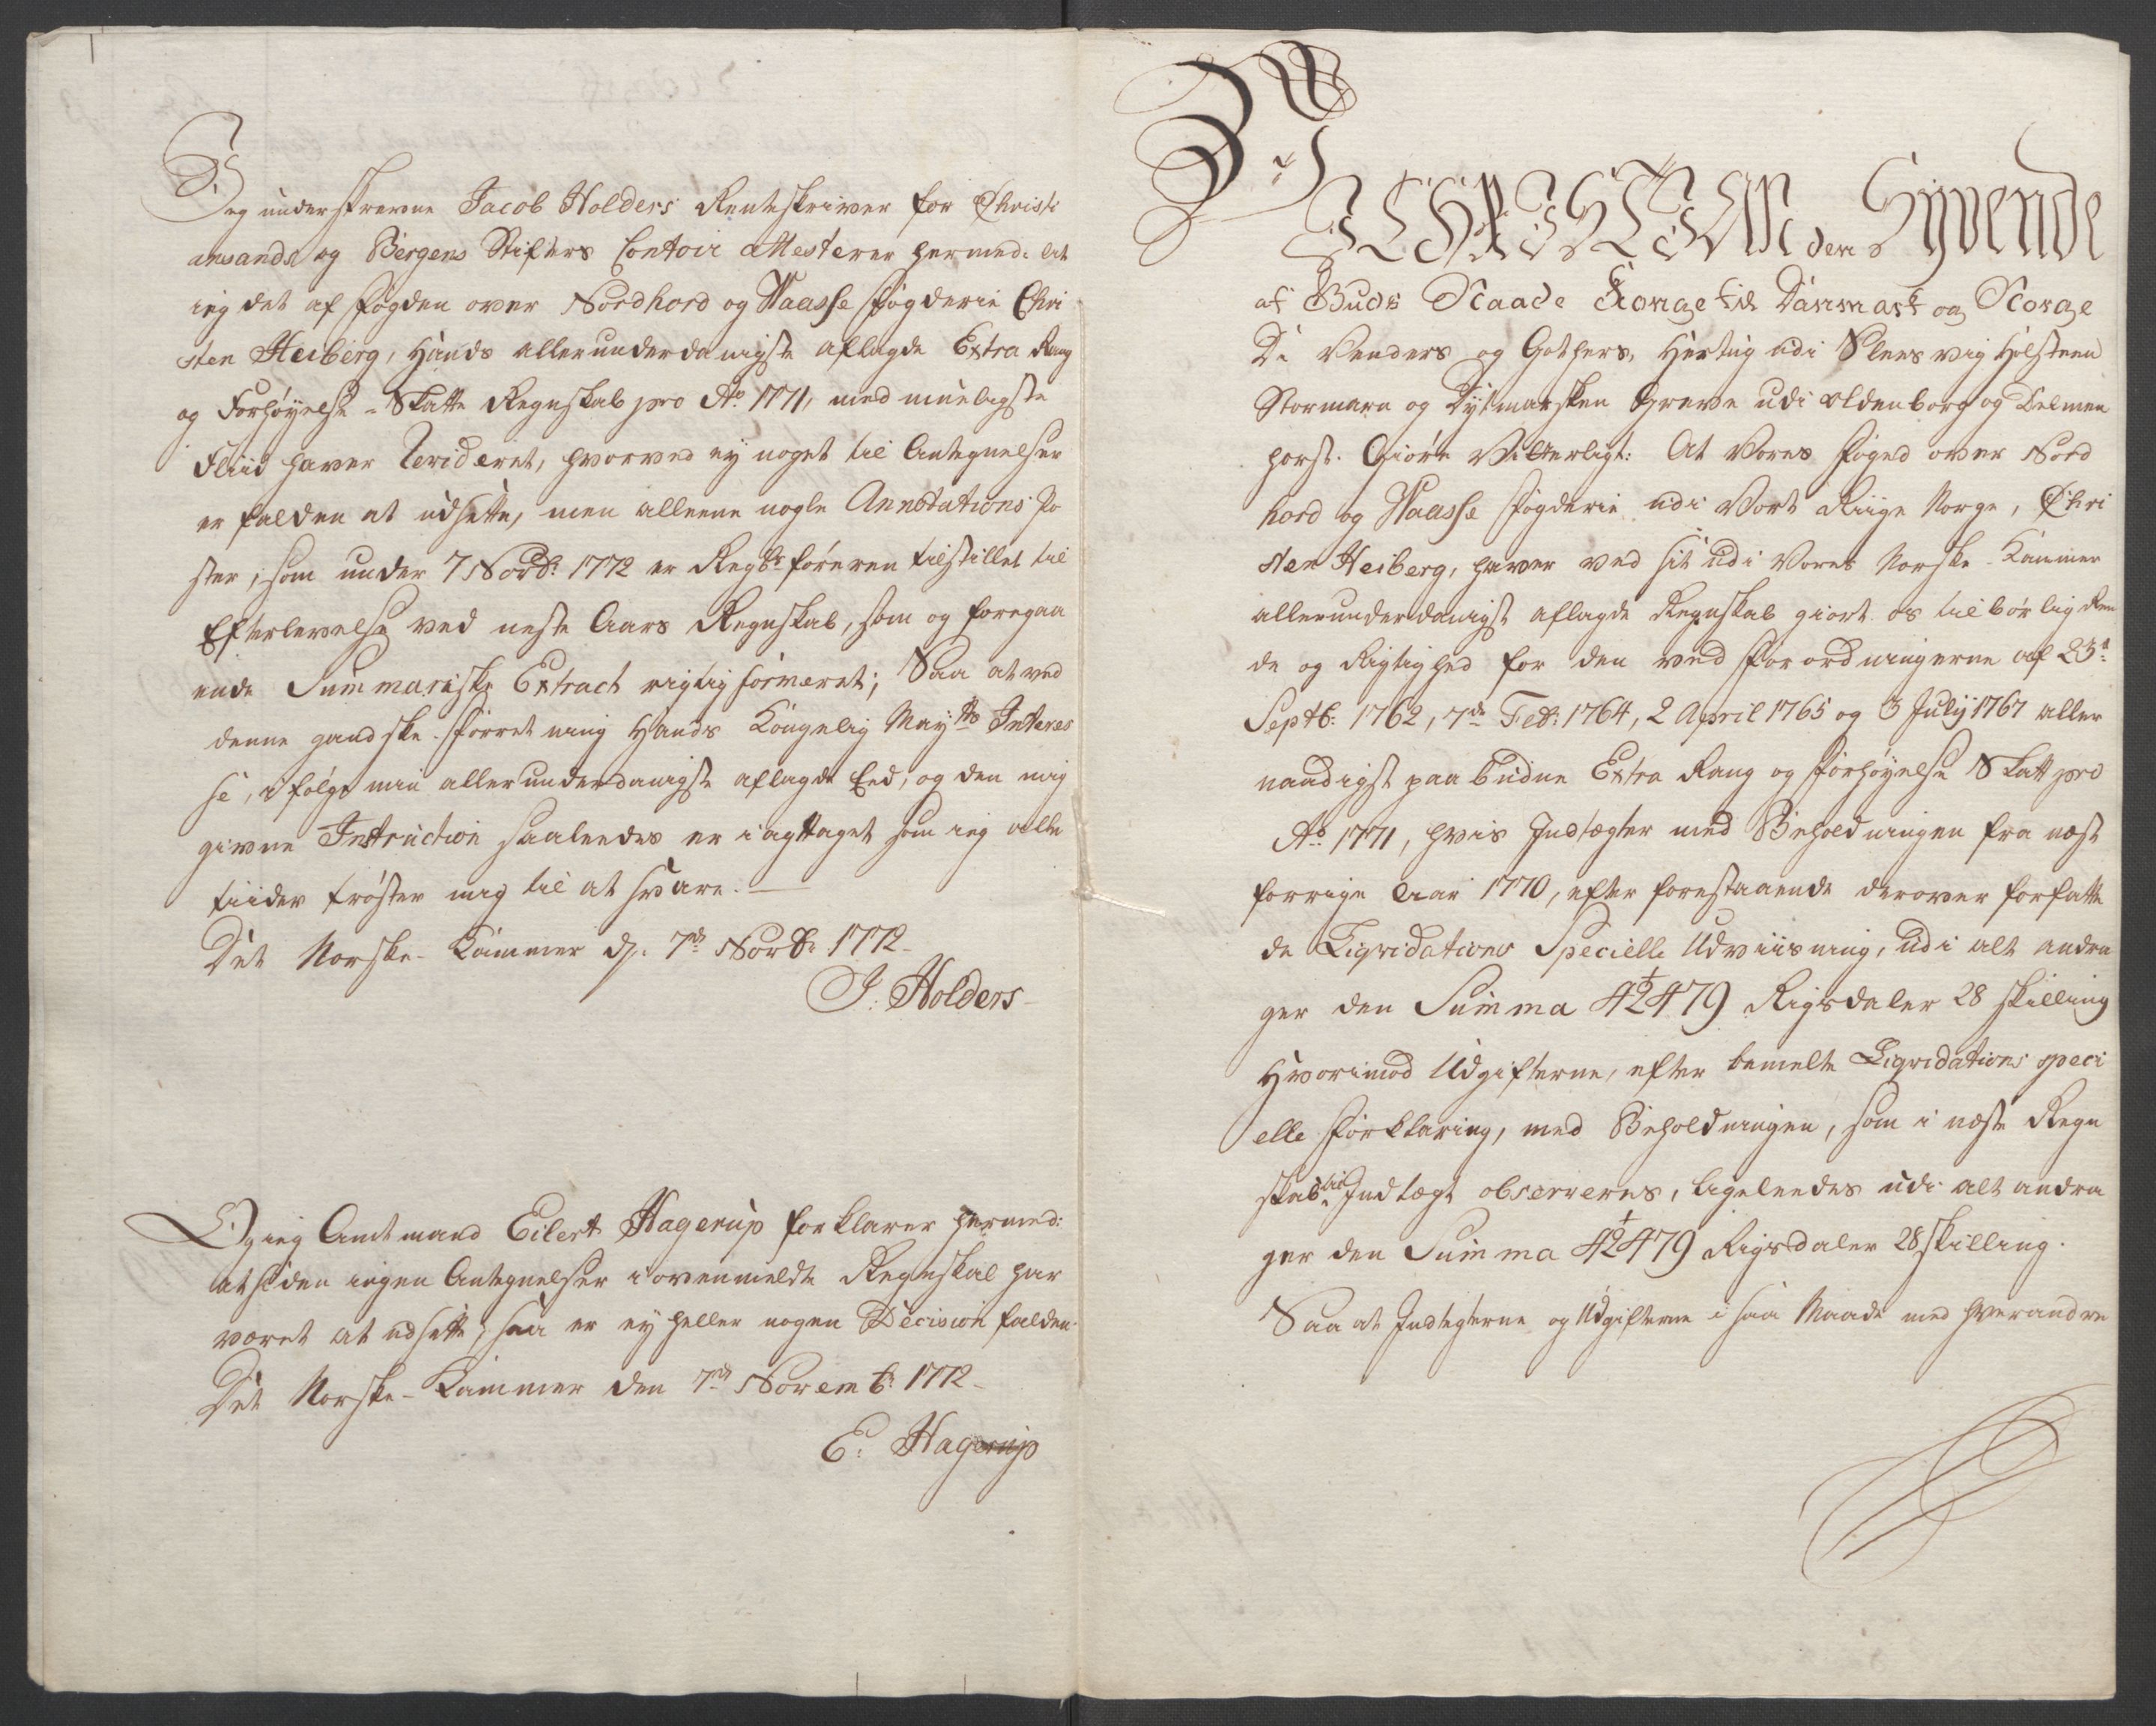 Jeg underskrevne Jacob Holders Renteskriver for Christi
ansands og Bergens Stifters Contoir attesterer hermed: at
ieg det af Fogden over Nordhord og Waasse Fogderie Chri
sten Heiberg, Hands allerunderdanigste aflagde Extra Rang
og Forhøyelse-Skatte Regnskab pro Ao 1771, med mueligste
Fliid haver Revideret, hvorved ey noget til Antegnelser
er falden at udsette, men alleene nogle Annotations Po
ster, som under 7 Novbr: 1772 er Regsb: føreren tilstillet til
Efterlevelse ved neste Aars Regnskab, som og foregaa
ende Summariske Extract rigtig formeret; Saa at ved
denne gandske Forretning Hands Kongelig Mayts Interes
se, i følge min allerunderdanigste aflagde Eed, og den mig
givne Instruction saaleedes er iagttaget som ieg alle
tiider trøster mig til at svare.
Det Norske-Kammer d: 7de Novbr: 1772
J: Holders
Og ieg Amtmand Eilert Hagerup forklarer hermed:
at siden ingen Antegnelser i ovenmeldte Regnskab har
været at udsette, saa er ey heller nogen Decision falden.
Det Norske-Kammer den 7de Novemb: 1772
E: Hagerup
Wi CHRISTIAN den Syvende
af Guds Naade Konge til Danmark og Norge
De Venders og Gothers, Hertug udi Slesvig Holsteen
Stormarn og Dytmarsken Greve udi Oldenborg og Delmen
horst. Giøre Vitterligt: At Vores Foged over Nord
hord og Waasse Fogderie udi Vort Riige Norge, Chri
sten Heiberg, haver ved sit udi Vores Norske-Kammer
allerunderdanigst aflagde Regnskab giort os tilbørlig Ree
de og Rigtighed for den ved Forordningerne af 23de
Septb: 1762, 7de Feb: 1764, 2 April 1765 og 3 July 1767 aller
naadigst paabudne Extra Rang og Forhøyelse Skatt pro
Ao 1771, hvis Indtægter med Beholdningen fra næst
forrige Aar 1770, efter forestaaende derover forfatte
de Liqvidations Specielle Udviisning, udi alt andra
ger den Summa 42479 Rigsdaler 28 skilling
Hvorimod Udgifterne, efter bemelte Liqvidations speci
elle Forklaring, med Beholdningen, som i næste Regn
skab til Indtægt observeres, ligeleedes udi alt andra
ger den Summa 42479 Rigsdaler 28 skilling.
Saa at Indtegterne og Udgifterne i saa Maade med hverandre